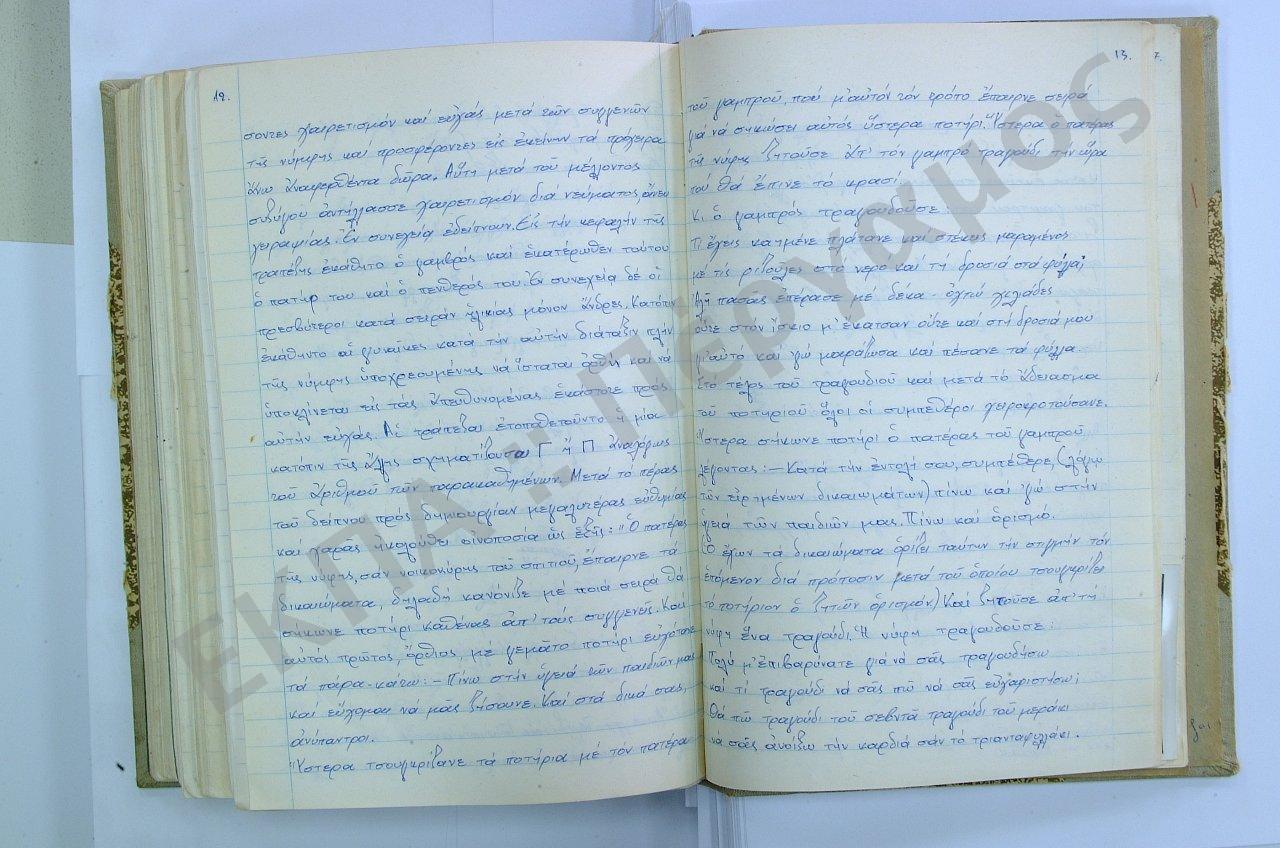 12.
σοντες χαιρετισμόν καί εὐχάς μετά τῶν συγγενῶν
τῆς νύμφης καί προσφέροντες εἰς ἐκείνην τά πρόχειρα
ἄνω ἀναφερθέντα δῶρα. Αὕτη μετά τοῦ μέλλοντος
συζύγου ἀντήλλασσε χαιρετισμόν διά νεύματος, ἄνευ
χειραψίας. Ἐν συνεχεία ἐδείπνουν. Εἰς τήν κεφαλήν τῆς
τραπέζης ἐκάθητο ὁ γαμβρός καί ἑκατέρωθεν τούτου
ὁ πατήρ του καί ὁ πενθερός του. Ἐν συνεχεία δέ οἱ
πρεσβύτεροι κατά σειράν ἡλικίας μόνον ἄνδρες. Κατόπιν
ἐκάθηντο αἱ γυναῖκες κατα τήν αὐτήν διάταξιν πλήν
τῆς νύμφης ὑποχρεουμένης νά ἵσταται ὀρθή καί νά
ὑποκλίνεται εἰς τάς ἀπευθυνομένας ἑκάστοτε πρός
αὐτήν εὐχάς. Αἱ τράπεζαι ἐτοποθετοῦντο ἡ μία
κατόπιν τῆς ἄλλης σχηματίζουσαι Γ ἤ Π ἀναλόγως
τοῦ ἀριθμοῦ τῶν παρακαθημένων. Μετά τό πέρας
τοῦ δείπνου πρός δημιουργίαν μεγαλυτέρας εὐθυμίας
καί χαρᾶς ἠκολούθει οἰνοποσία ὡς ἑξῆς: "Ὁ πατέρας
τῆς νύφης, σάν νοικοκύρης τοῦ σπιτιοῦ, ἔπαιρνε τά
δικαιώματα, δηλαδή κανόνιζε μέ ποιά σειρά θά
σήκωνε ποτήρι καθένας ἀπ' τούς συγγενεῖς. Καί
αὐτός πρῶτος, ὄρθιος, μέ γεμάτο ποτήρι εὐχότανε
τά πάρα-κάτω: - Πίνω στήν ὑγειά τῶν παιδιῶν μας
καί εὔχομαι νά μᾶς ζήσουνε. Καί στά δικά σας,
ἀνύπαντροι.
Ὕστερα τσουγκρίζανε τά ποτήρια μέ τόν πατέρα
13.
τοῦ γαμπροῦ, πού μ' αὐτόν τόν τρόπο ἔπαιρνε σειρά
γιά νά σηκώσει αὐτός ὕστερα ποτήρι. Ὕστερα ὁ πατέρας
τῆς νύφης ζητοῦσε ἀπ' τόν γαμπρό τραγούδι τήν ὥρα
πού θά ἔπινε τό κρασί.
Κι ὁ γαμπρός τραγουδοῦσε:
Τί ἔχεις καημένε πλάτανε καί στέκεις μαραμένος
μέ τίς ριζοῦλες στό νερό καί τή δροσιά στά φύλλα;
Ἀλῆ πασᾶς ἐπέρασε μέ δέκα - ὀχτώ χιλιάδες
οὔτε στόν ἴσκιο μ' ἔκατσαν οὔτε καί στή δροσιά μου
γι' αὐτό καί γώ μαράζωσα καί πέσανε τά φύλλα.
Στό τέλος τοῦ τραγουδιοῦ καί μετά τό ἄδειασμα
τοῦ ποτηριοῦ ὅλοι οἱ συμπεθέροι χειροκροτούσανε.
Ὕστερα σήκωνε ποτήρι ὁ πατέρας τοῦ γαμπροῦ
λέγοντας: - Κατά τήν ἐντολή σου, συμπέθερε, (λόγω
τῶν εἰρημένων δικαιωμάτων) πίνω καί ἐγώ στήν
ὑγειά τῶν παιδιῶν μας. Πίνω καί ὁρισμό.
(Ὁ ἔχων τά δικαιώματα ὁρίζει ταύτην τήν στιγμήν τόν
ἑπόμενον διά πρόποσιν μετά τοῦ ὁποίου τσουγκρίζει
τό ποτήριον ὁ ζητῶν ὁρισμόν.) Καί ζητοῦσε ἀπ' τή
νύφη ἕνα τραγούδι. Ἡ νύφη τραγουδοῦσε:
Πολύ μ' ἐπιβαρύνατε γιά νά σᾶς τραγουδήσω
καί τί τραγούδι νά σᾶς πῶ νά σᾶς εὐχαριστήσω;
Θά πῶ τραγούδι τοῦ σεβντᾶ τραγούδι τοῦ μεράκι
νά σᾶς ἀνοίξω τήν καρδιά σάν τό τριανταφυλλάκι.
7.
ΕΚΠΑ :: Πέργαμος